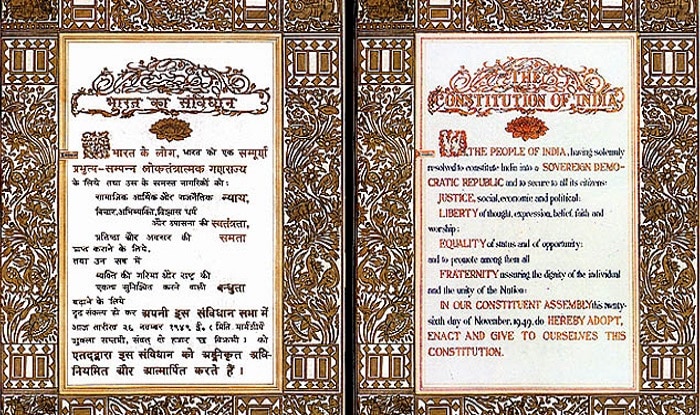 भारत का संविधान
हम भारत के लोग, भारत को एक सम्पूर्ण
प्रभुत्व-सम्पन्न लोकतंत्रात्मक गणराज्य
के लिये तथा उस के समस्त नागरिकों को:
सामाजिक आर्थिक और राजनैतिक न्याय,
विचार, अभिव्यक्ति, विश्वास धर्म
और उपासना की स्वतंत्रता,
प्रतिष्ठा और अवसर की समता
प्राप्त कराने के लिये,
तथा उन सब में
व्यक्ति की गरिमा और राष्ट्र की
एकता सुनिश्चित करने वाली बन्धुता
बढ़ाने के लिये
दृढ़ संकल्प हो कर अपनी इस संविधान सभा में
आज तारीख २६ नवम्बर १९४९ ई॰ (मिति मार्गशीर्ष
शुक्ला सप्तमी, संवत् दो हजार छह विक्रमी) को
एतद्द्वारा इस संविधान को अङ्गीकृत अधि-
नियमित और आत्मार्पित करते हैं।
THE
CONSTITUTION OF INDIA
WE, THE PEOPLE OF INDIA, having solemnly
resolved to constitute India into a SOVEREIGN DEMO-
CRATIC REPUBLIC and to secure to all its citizens:
JUSTICE, social, economic and political;
LIBERTY of thought, expression, belief, faith and
worship;
EQUALITY of status and of opportunity;
and to promote among them all
FRATERNITY assuring the dignity of the individual
and the unity of the Nation;
IN OUR CONSTITUENT ASSEMBLY this twenty-
sixth day of November, 1949, do HEREBY ADOPT,
ENACT AND GIVE TO OURSELVES THIS
CONSTITUTION.